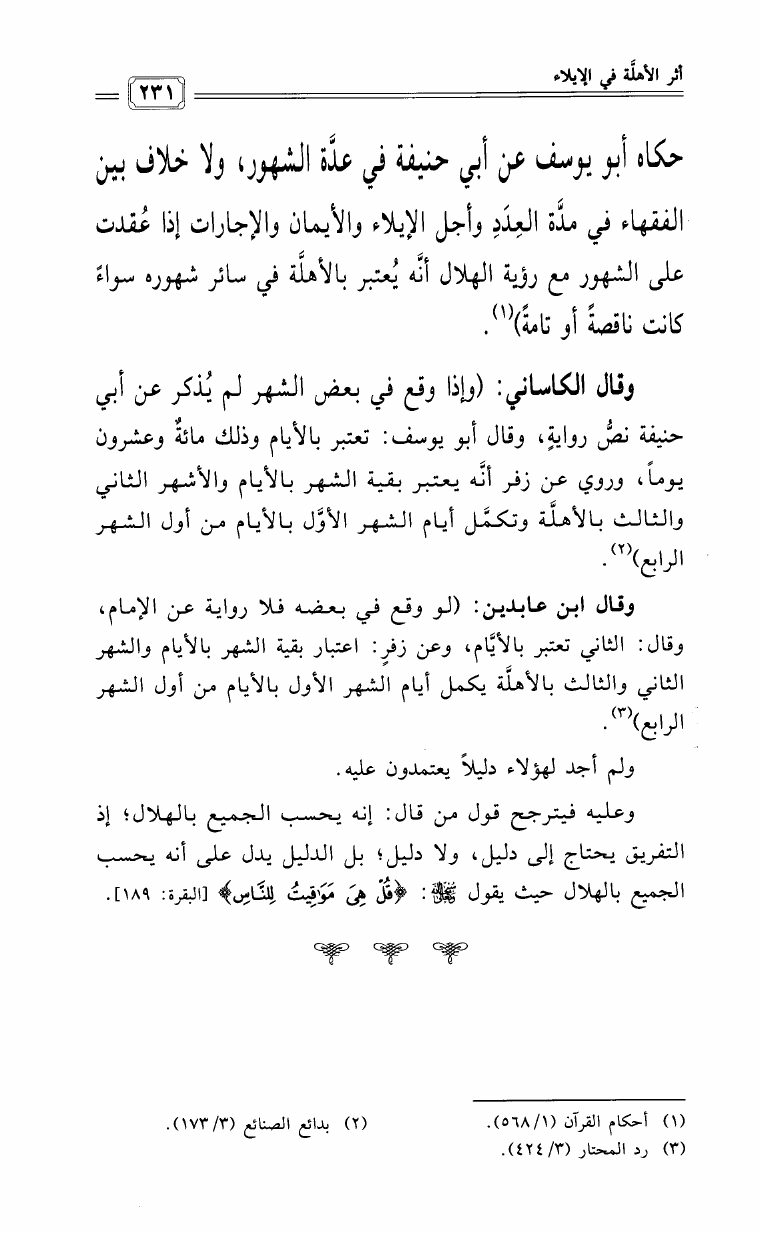 أثر الأهلَّة في الإيلاء
٢٣١
حكاه أبو يوسف عن أبي حنيفة في عدَّة الشهور، ولا خلاف بين
الفقهاء في مدَّة العِدَدِ وأجل الإيلاء والأيمان والإجارات إذا عُقدت
على الشهور مع رؤية الهلال أنَّه يُعتبر بالأهلَّة في سائر شهوره سواءً
كانت ناقصةً أو تامةً)(١).
وقال الكاساني: (وإذا وقع في بعض الشهر لم يُذكر عن أبي
حنيفة نصُّ روايةٍ، وقال أبو يوسف: تعتبر بالأيام وذلك مائةٌ وعشرون
يوماً، وروي عن زفر أنَّه يعتبر بقية الشهر بالأيام والأشهر الثاني
والثالث بالأهلَّة وتكمَّل أيام الشهر الأوَّل بالأيام من أول الشهر
الرابع)(٢).
وقال ابن عابدين: (لو وقع في بعضه فلا رواية عن الإمام،
وقال: الثاني تعتبر بالأيَّام، وعن زفرٍ: اعتبار بقية الشهر بالأيام والشهر
الثاني والثالث بالأهلَّة يكمل أيام الشهر الأول بالأيام من أول الشهر
الرابع)(٣).
ولم أجد لهؤلاء دليلاً يعتمدون عليه.
وعليه فيترجح قول من قال: إنه يحسب الجميع بالهلال؛ إذ
التفريق يحتاج إلى دليل، ولا دليل؛ بل الدليل يدل على أنه يحسب
الجميع بالهلال حيث يقول ﷻ: ﴿قُلْ هِيَ مَوَاقِيتُ لِلنَّاسِ﴾ [البقرة: ١٨٩].
(١) أحكام القرآن (١/٥٦٨).
(٢) بدائع الصنائع (٣/١٧٣).
(٣) رد المحتار (٣/٤٢٤).